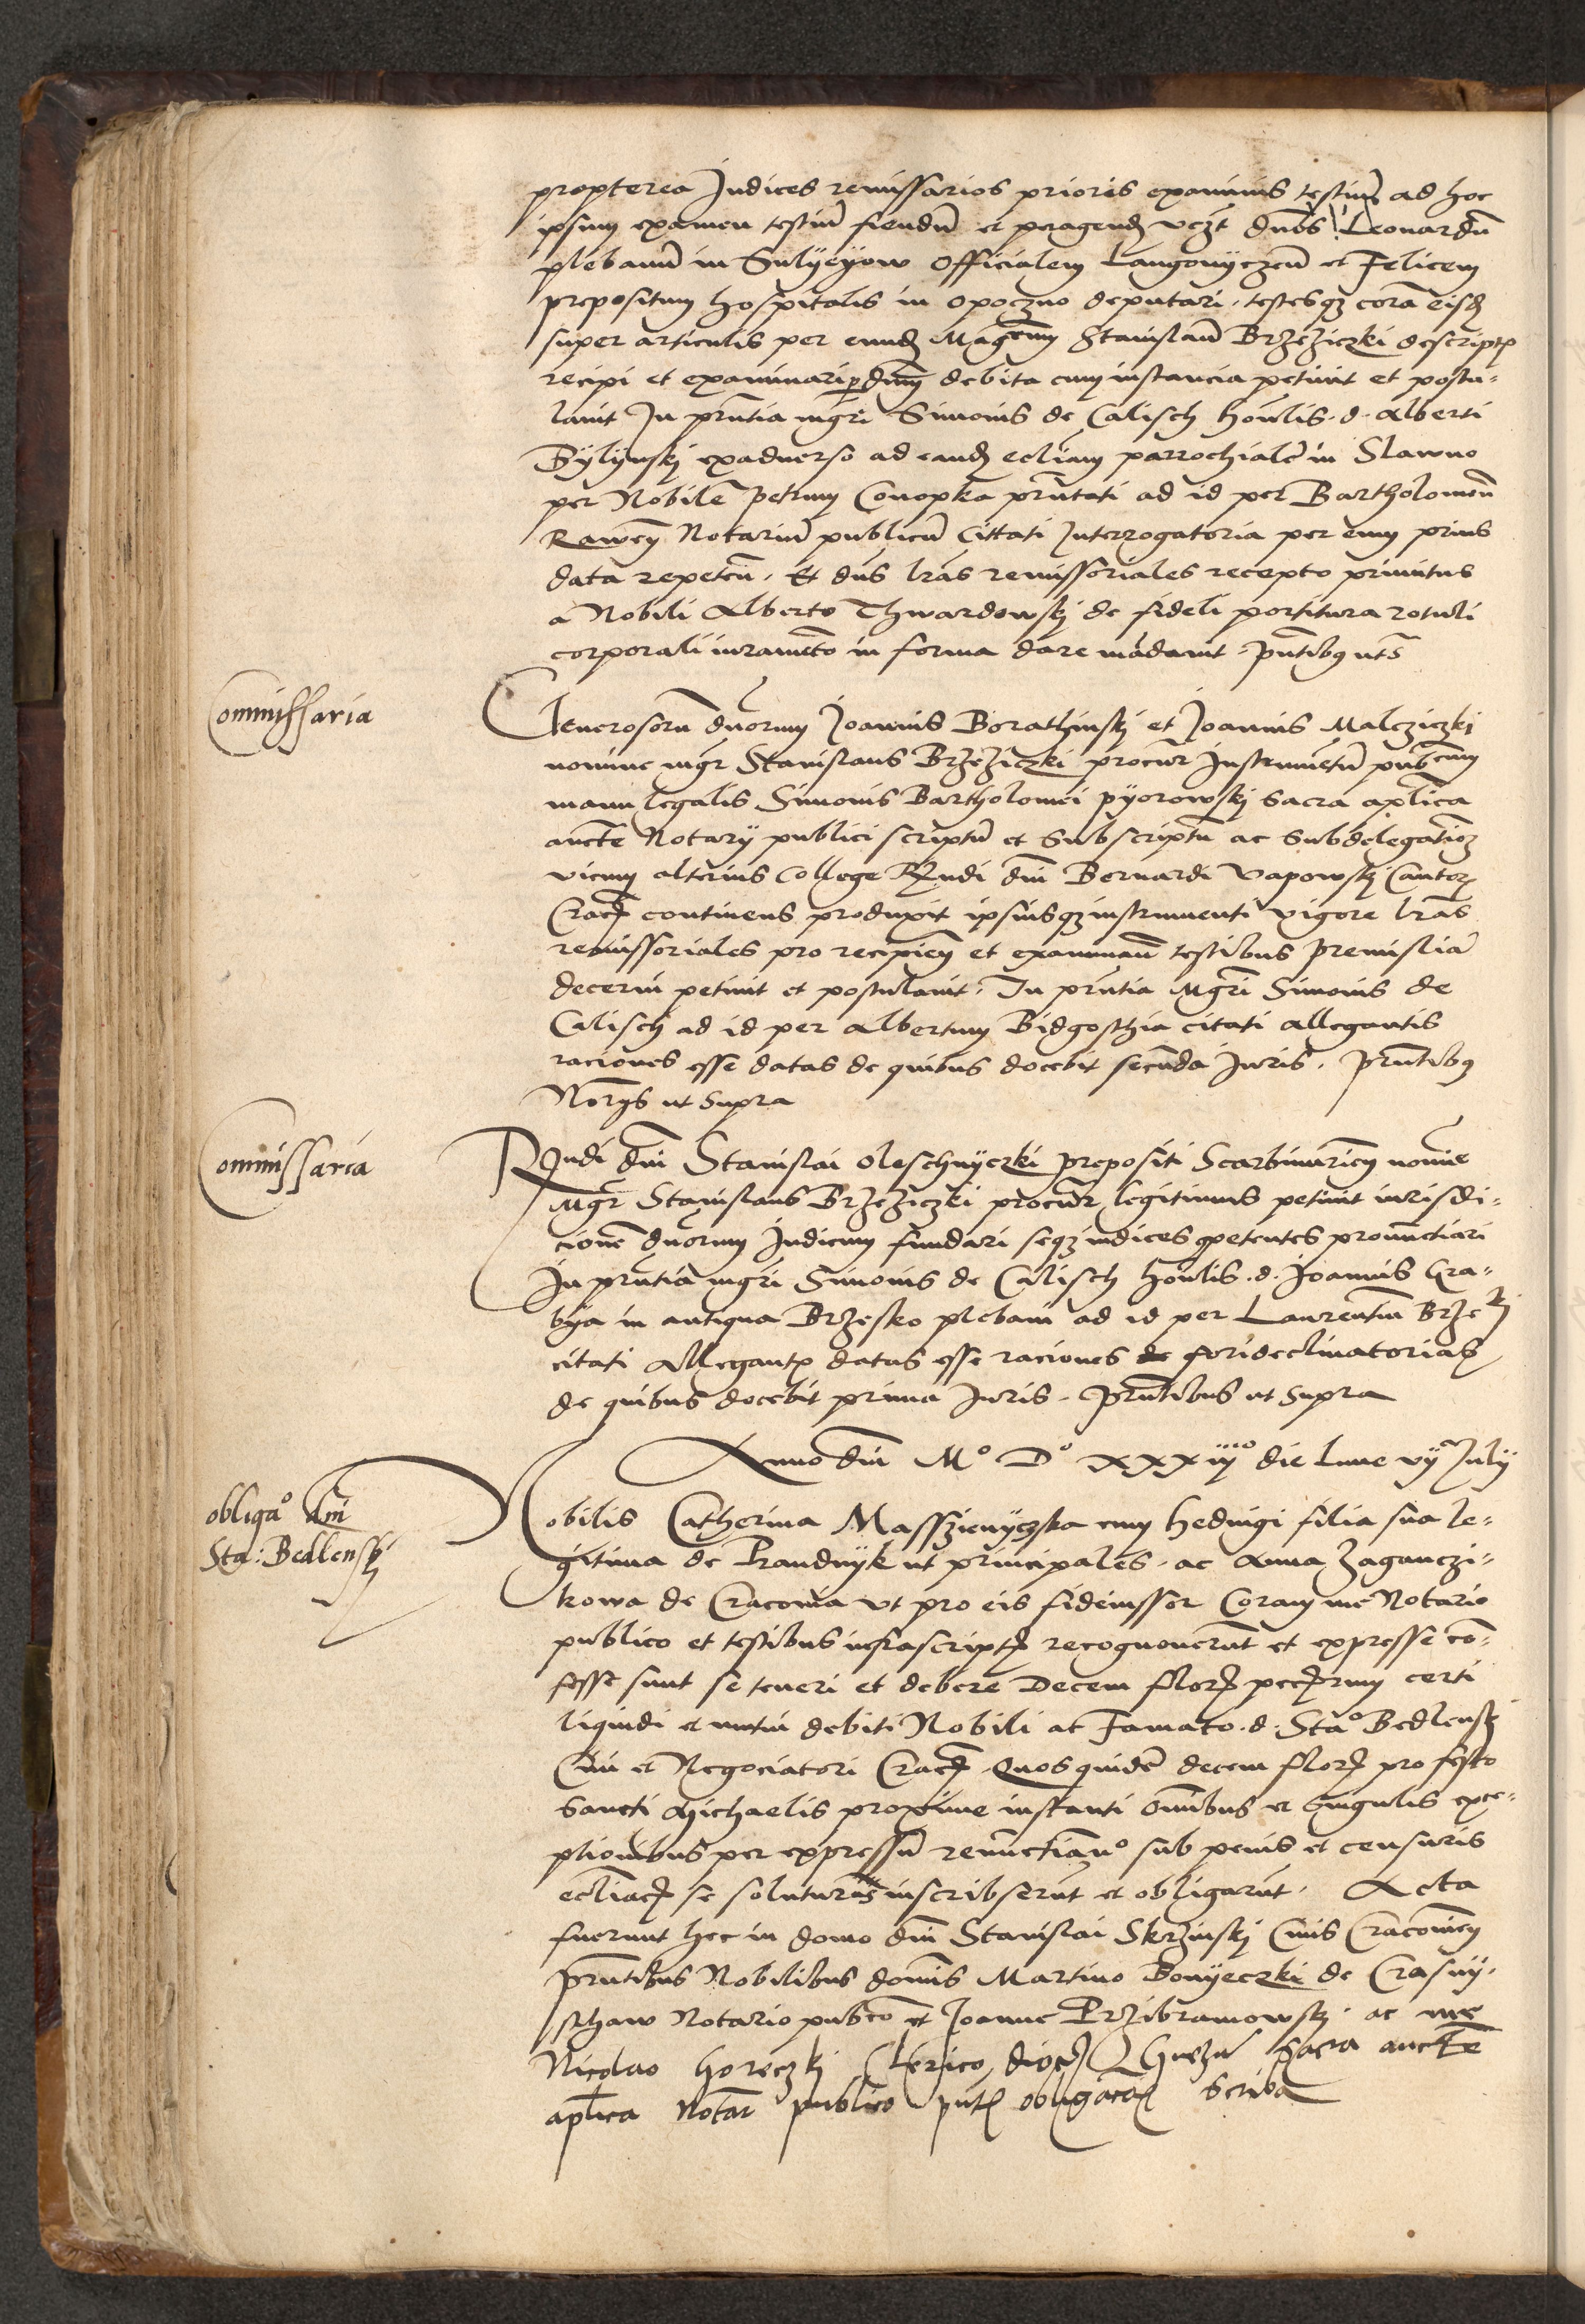 propterea Judices remissarios prioris examinis testiũ ad hoc
ipsum examen testiũ fiendũ et peragend vczt dños Leonardũ
plebanũ in Sulyeyow Officialem Langonyczeñ et Felicem
prepositum hospitalis in Opoczno deputari, testesqz corã eisd
super articulis per eund Magrum Stanislaũ Brzeziczki descript
recipi et examinari debita cum instancia petiuit et postu-
lauit In prñtia mgri Simonis de Calisch ho. d. Alberti
Bylynskj exaduerso ad eand eccliam parrochialẽ in Slawno
per Nobilẽ Petrum Conopka prñtati ad id per Bartholomeũ
Notariũ publicũ Cittati Interrogatoria per eum prius
data repeteñ. Et dñs lras remissoriales recepto primitus
a Nobili Alberto Thwardowskj de fideli portitura rotuli
corporali iuramẽto in forma dare mãdauit, pñtibus uts
Commissaria
Generosorũ dnorum Joannis Borathinskj et Joannis Malcziczkj
nomine mgr Stanislaus Brzeziczki procur Instrumẽtũ
manu legalis Simonis Bartholomei Pyorowskj Sacra aplica
aucte Notarij publici scriptũ et Subscriptũ ac Subdelegationẽ
vicium alterius College Rndi dni Bernardi Vapowskj Cantor
Crac continens produxit ipsiusqz instrumenti vigore lras
remissoriales pro recipien et examinan testibus Premisliã
decerni petiuit et postulauit. In prñtia Mgri Simonis de
Calisch ad id per Albertum Bidgosthia citati Allegantis
raciones esse datas de quibus docebit secunda Juris. Prñtibus
Norijs ut Supra
Commissaria
Rndi dni Stanislai Oleschnyczki prepositi Scarbimirien nomine
Mgr Stanislaus Brzeziczki procur legitimus petiuit iurisdi-
cionẽ dnorum Judicum fundari seqz iudices competentes pronunctiari
In prñtia mgri Simonis de Calisch ho. d. Joannis Gra-
bya in antiqua Brzesko plebani ad id per Laurentiũ
citati Allegant datas esse raciones de fori declinatorias
de quibus docebit prima Juris. Prñtibus ut Supra
Anno dni Mº Dº xxxiijº die Lune vijª Julij
obligaº dni
Sta: Bedlenskj
Nobilis Catherina Masszienyczska cum Heduigi filia sua le-
gitima de Prandnyk ut principales. ac Anna Zaganczi-
kowa de Cracouia vt pro eis fideiussor Coram me Notario
publico et testibus infrascript recognouerũt et expresse cõ-
fesse sunt se teneri et debere Decem flor certi
liquidi et debiti Nobili ac Famato d. Staº Bedlenskj
Ciui et Negociatori Crac. Quos quidẽ decem flor pro festo
Sancti Michaelis proxime instanti Omnibus et Singulis exce-
ptionibus per expressũ renunctianº sub penis et censuris
eccliac se soluturas inscribserũt et obligarũt. Acta
fuerunt hec in domo dni Stanislai Skrzinskj Ciuis Cracouien
prñtibus Nobilibus dominis Martino Bonyeczki de Crasny-
sthaw Notario publico et Joanne Przibramowskj. ac me
Nicolao Goreczkj Clerico dioc Gnezn Sacra aucte
aplica Notar publico pñt obligacõis Scriba